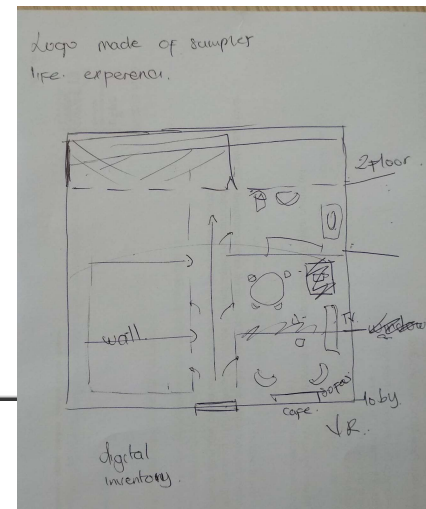 Logo made of sampler
life. experenci.
2 Floor.
wall.
TV
cafe.
loby
R.
digital
inventory.